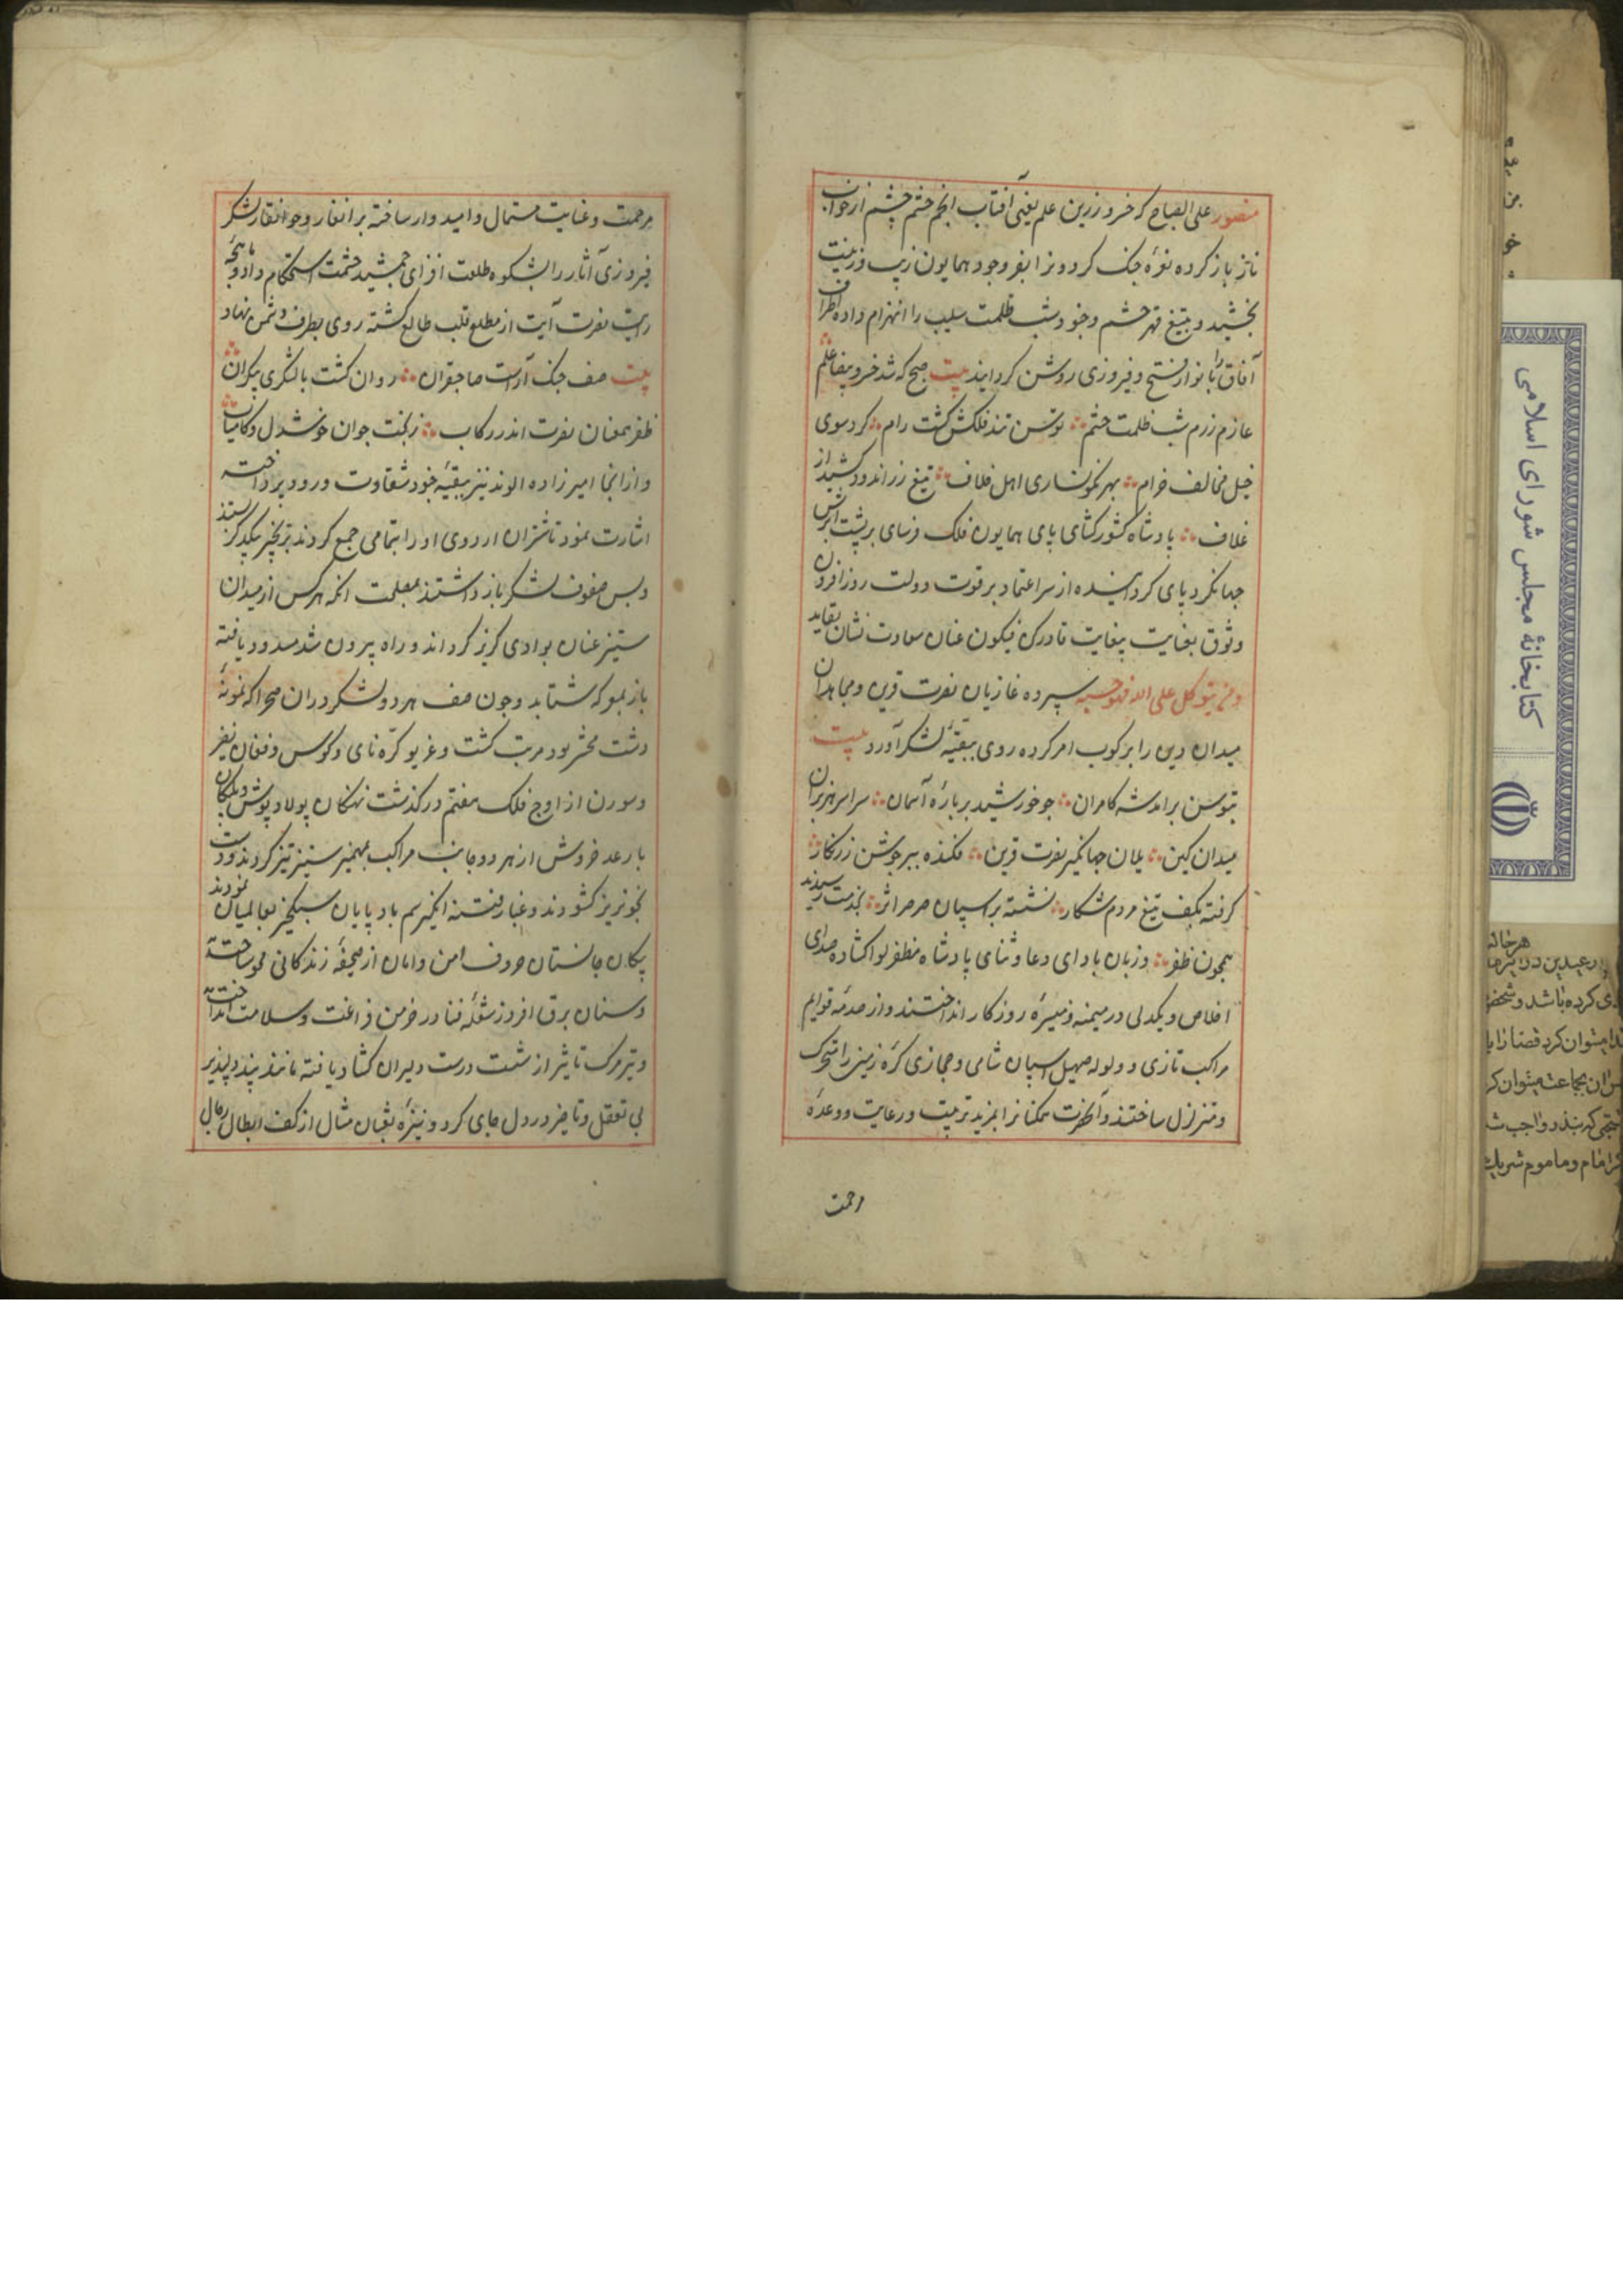 منصور علی الصباح که خسرو زرین علم یعنی آفتاب انجم حشم چشم از خواب
ناز باز کرده نعره جنک کردون را بفر وجود همایون زیب و زینت
بخشید و بتیغ قهر حشم وجنود شب ظلمت سلیب را انهزام داده اطراف
آفاق را بانوار فتح و فیروزی روشن کردانید بیت صبح که شد خسرو بیضا علم
عازم رزم شب ظلمت حشم توسن تند فلکش کشت رام کرد سوی
خیل مخالف خرام بهر نکونساری اهل خلاف تیغ زراندود کشید از
غلاف پادشاه کشورکشای پای همایون فلک فرسای بر پشت ابرش
جهانکرد پای کردانیده از سر اعتماد بر قوت دولت روزافزون
وثوق بغایت بیغایت قادر کن فیکون عنان سعادت نشان بقاید
ومن یتوکل علی الله فهو حسبه سپرده غازیان نصرت قرین و مجاهدان
میدان دین را برکوب امر کرده روی ببقیه لشکر آورد بیت
بتوسن برامد شه کامران جو خورشید بر باره آسمان سراسر هزبران
میدان کین یلان جهانکیر نصرت قرین فکنده ببر جوشن زرنکار
کرفته بکف تیغ مردم شکار نشسته بر اسپان صرصر اثر بخدمت رسیدند
همچون ظفر وزبان بادای دعا و ثنای پادشاه مظفر لوا کشاده صدای
اخلاص و یکدلی در میمنه و میسره روزکار انداختند و از صدمه قوایم
مراکب تازی و ولوله صهیل اسپان شامی و حجازی کره زمین را متحرک
و متزلزل ساختند و آنحضرت همکنانرا بمزید تربیت و رعایت و وعده
رحمت
مرحمت و عنایت مستمال و امیدوار ساخته برانغار وجوانغار لشکر
فیروزی آثار را بشکوه طلعت افزای جمشید حشمت استحکام داد و ماهچه
رایت نصرت آیت از مطلع قلب طالع کشته روی بطرف دشمن نهاد
بیت صف جنک آراست صاحبقران روان کشت با لشکری بیکران
ظفر همعنان نصرت اندر رکاب ز بخت جوان خوشدل و کامیاب
و از انجا امیرزاده الوند نیز ببقیه جنود شقاوت ورود پرداخته
اشارت نمود تا شتران اردوی او را بتمامی جمع کردند بزنجیر بیکدیکر بستند
و پس صفوف لشکر بازداشتند بمصلحت انکه هرکس از میدان
ستیز عنان بوادی کریز کرداند و راه بیرون شد مسدود یافته
باز بمعرکه شتابد و چون صف هر دو لشکر در ان صحرا که نمونه
دشت محشر بود مرتب کشت و غریو کره نای و کوس و فغان نفیر
و سورن از اوج فلک هفتم درکذشت نهنکان پولادپوش و پلنکان
با رعد خروش از هر دو جانب مراکب بمهمیز ستیز تیز کردند و دست
بخونریز کشودند و غبار فتنه انکیز سم بادپایان سبکخیز بعالمیان نمودند
پیکان جانستان حروف امن و امان از صحیفه زندکانی محو ساخت
و سنان برق افروز شعله فنا در خرمن فراغت و سلامت انداخت
و تیر مرک تاثیر از شست درست دلیران کشاد یافته مانند پند دلپذیر
بی تعقل و تاخیر در دل جای کرد و نیزه ثعبان مثال از کف ابطال رجال
کتابخانهٔ مجلس شورای اسلامی